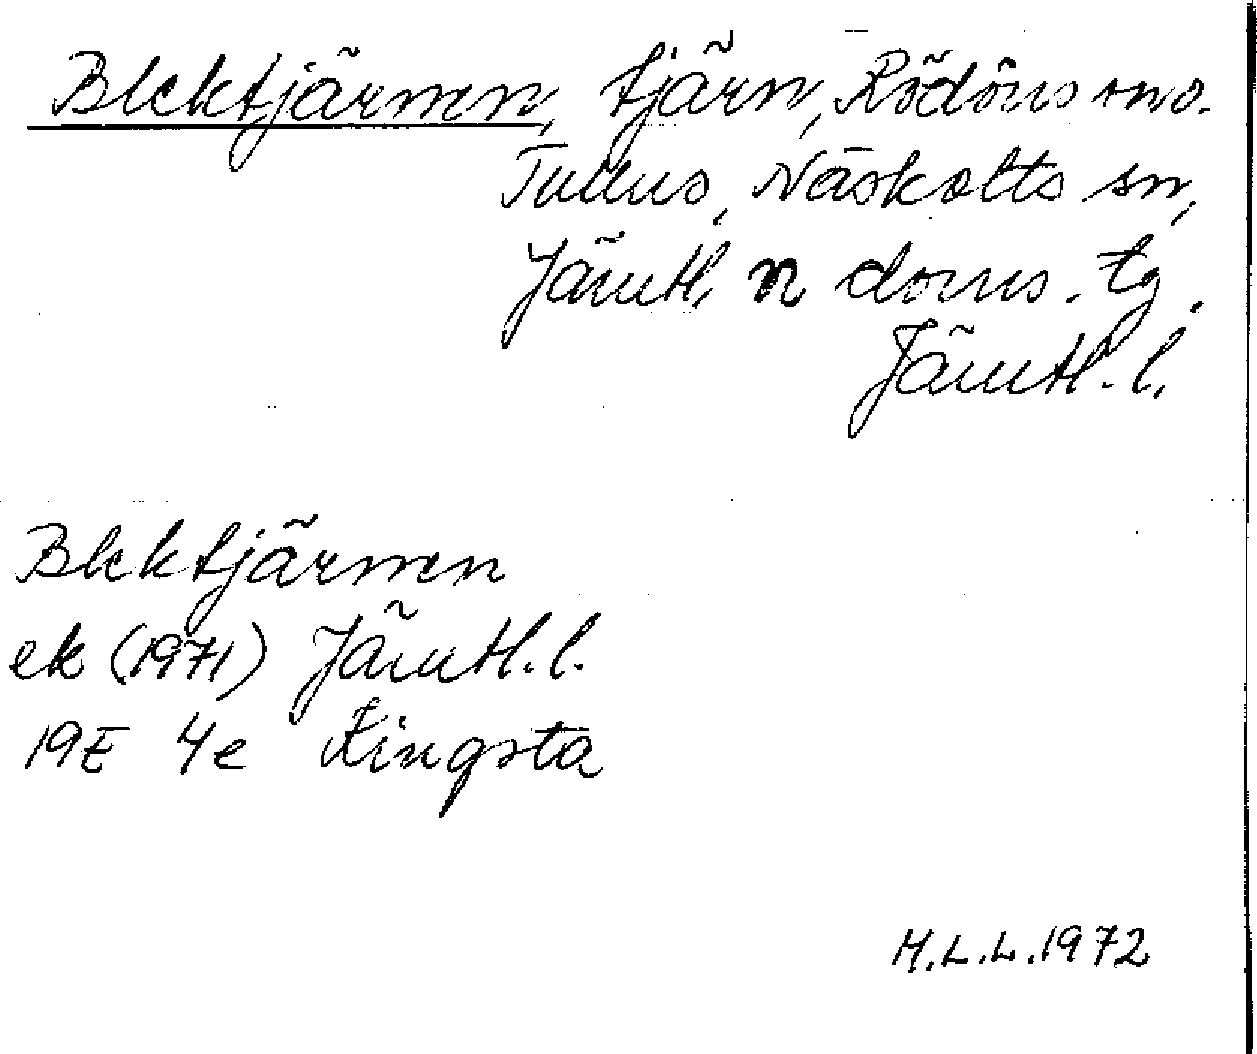 Blektjärnen, tjärn, Rödöns o no.
Tullus, Näskotts sn,
Jämtl. n doms. tg.
Jämtl. l.
Blektjärnen
ek (1971) Jämtl. l.
19E 4e Kingsta
M.L.L. 1972